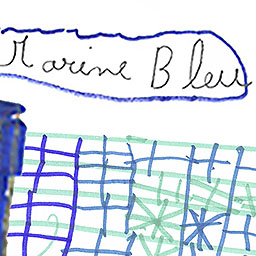 Marine Bleu